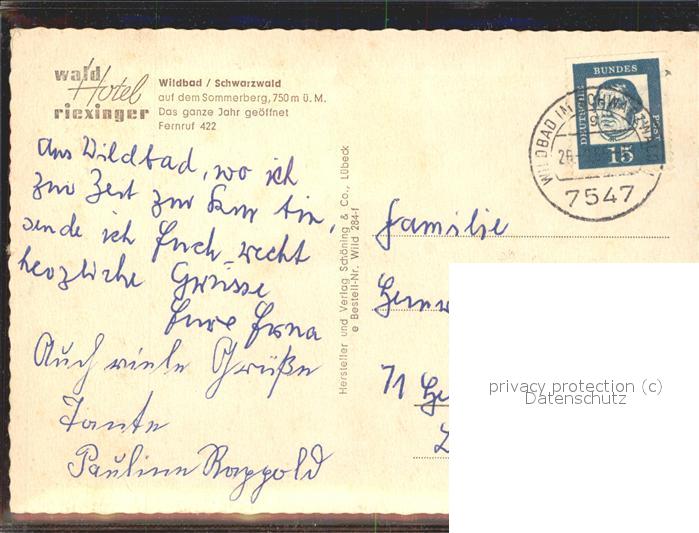 wald Hotel riexinger
Wildbad / Schwarzwald
auf dem Sommerberg, 750 m ü. M.
Das ganze Jahr geöffnet
Fernruf 422
Aus Wildbad, wo ich
zur Zeit zur Kur bin,
sende ich Euch recht
herzliche Grüsse
Eure Erna
Auch viele Grüße
Tante
Pauline Rappold
Hersteller und Verlag Schöning & Co., Lübeck
e Bestell-Nr. Wild 284-f
DEUTSCHE
BUNDES
POST
15
WILDBAD IM SCHWARZWALD
7547
Familie
71
privacy protection (c)
Datenschutz